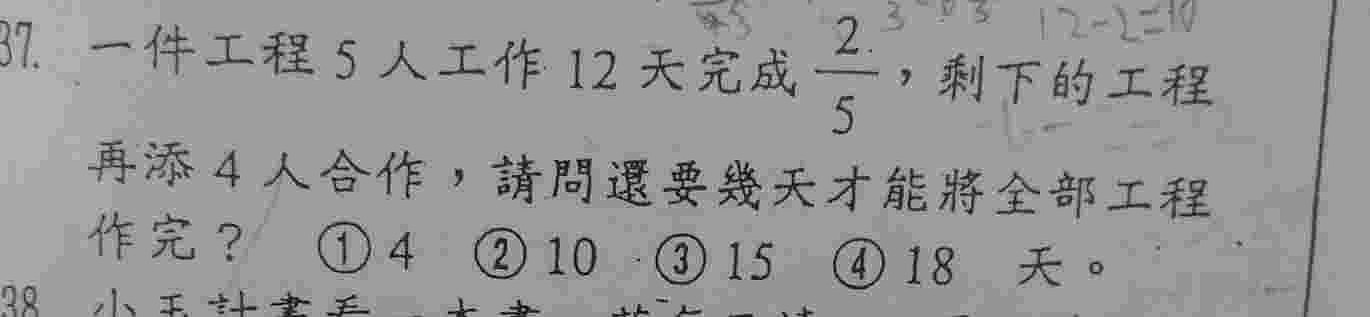 12-2=10
37. 一件工程 5 人工作 12 天完成 2/5，剩下的工程
再添 4 人合作，請問還要幾天才能將全部工程
作完？ ① 4 ② 10 ③ 15 ④ 18 天。
38